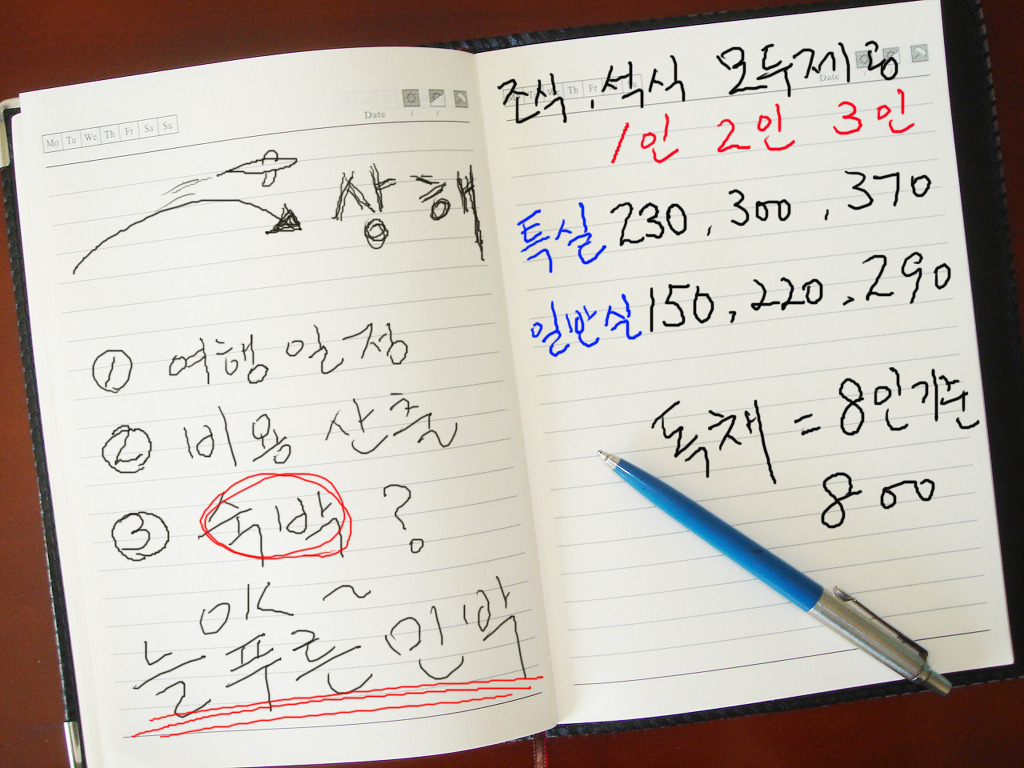 Mo Tu We Th Fr Sa Su
Date / /
상해
① 여행 일정
② 비용 산출
③ 숙박 ?
OK ~
늘푸른 민박
Th Fr
Date
조식.석식 모두제공
1인 2인 3인
특실 230, 300, 370
일반실 150, 220, 290
독채 = 8인기준
800